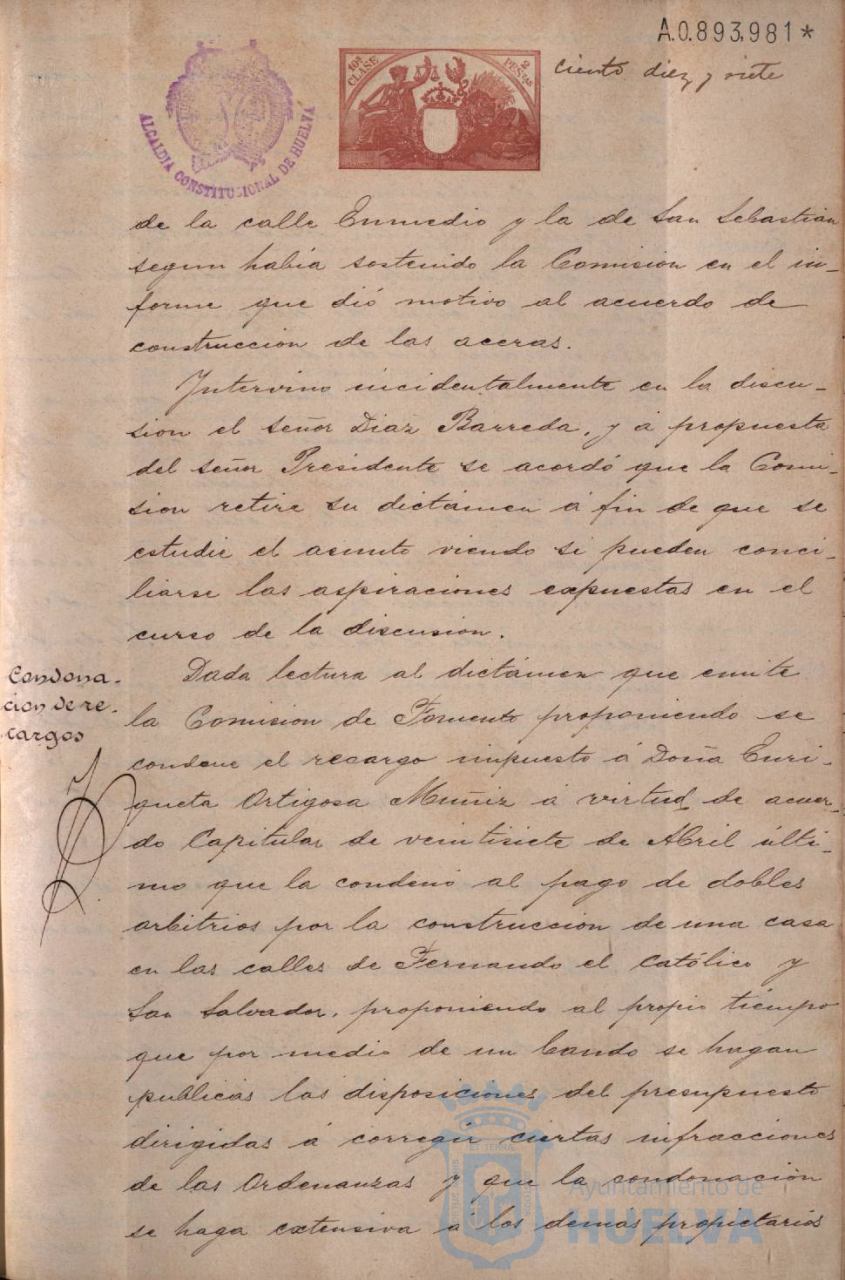 A.0.893,981*
10ª CLASE
2 PESTAS
ciento diez y siete
ALCALDIA CONSTITUCIONAL DE HUELVA
de la calle Enmedio y la de San Sebastian
segun habia sostenido la Comision en el in-
forme que dió motivo al acuerdo de
construccion de las aceras.
Intervino incidentalmente en la discu-
sion el señor Diaz Barreda, y á propuesta
del señor Presidente se acordó que la Comi-
sion retire su dictámen á fin de que se
estudie el asunto viendo si pueden conci-
liarse las aspiraciones expuestas en el
curso de la discusion.
Condona-
cion de re-
cargos
Dada lectura al dictámen que emite
la Comision de Fomento proponiendo se
condone el recargo impuesto á Doña Enri-
queta Ortigosa Muñiz á virtud de acuer-
do Capitular de veintisiete de Abril últi-
mo que la condenó al pago de dobles
arbitrios por la construccion de una casa
en las calles de Fernando el Católico y
San Salvador, proponiendo al propio tiempo
que por medio de un bando se hagan
publicas las disposiciones del presupuesto
dirigidas á corregir ciertas infracciones
de las Ordenanzas y que la condonación
se haga extensiva á los demas propietarios
Ayuntamiento de
HUELVA